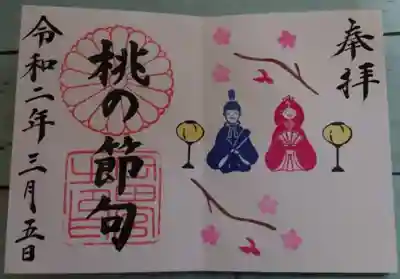 奉拝
桃の節句
令和二年三月五日